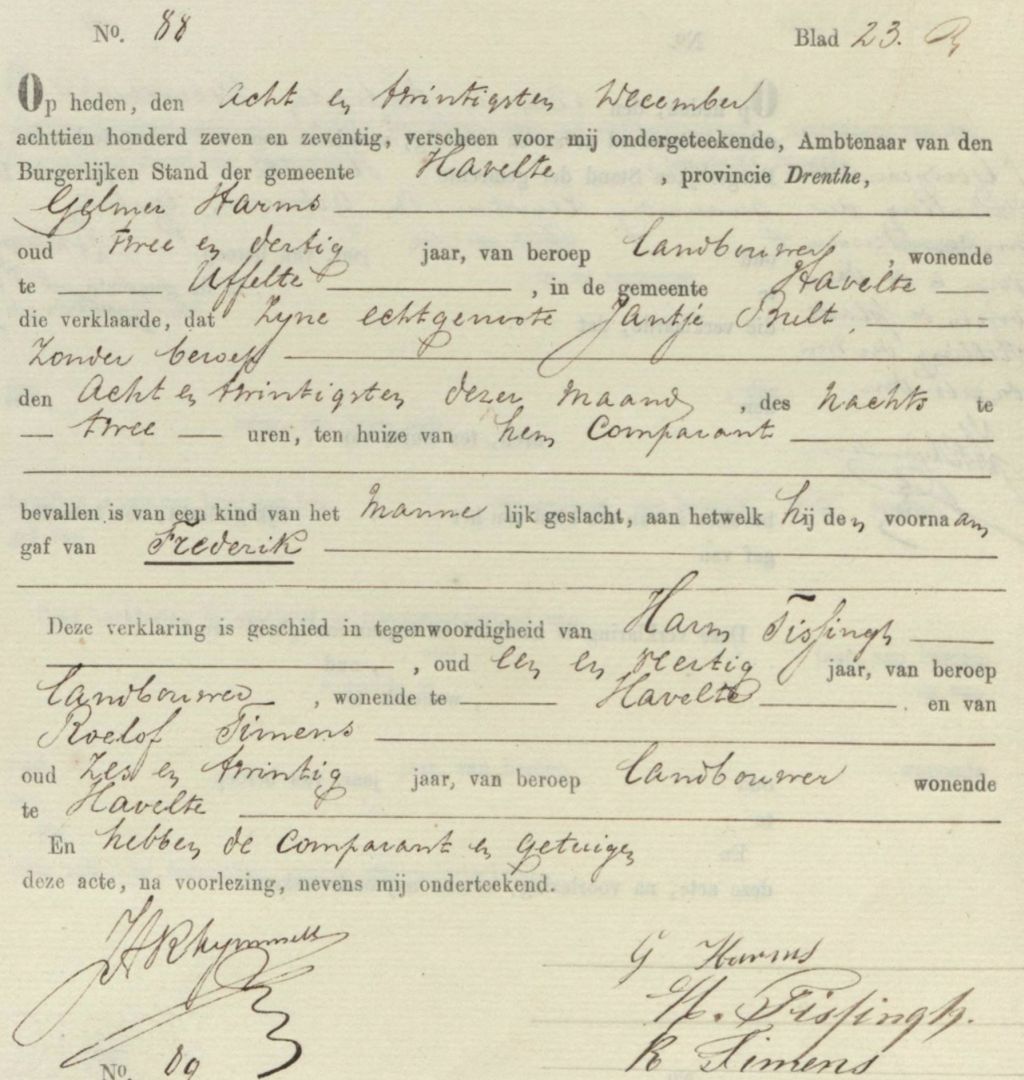 No. 88 Blad 23.
Op heden, den Acht en twintigsten December
achttien honderd zeven en zeventig, verscheen voor mij ondergeteekende, Ambtenaar van den
Burgerlijken Stand der gemeente Havelte, provincie Drenthe,
Gelmer Harms
oud twee en dertig jaar, van beroep landbouwer, wonende
te Uffelte, in de gemeente Havelte
die verklaarde, dat Zyne echtgenoote Jantje Bult,
Zonder beroep
den Acht en twintigsten dezer maand, des nachts te
twee uren, ten huize van hem Comparant
bevallen is van een kind van het Manne lijk geslacht, aan hetwelk hij den voornaam
gaf van Frederik
Deze verklaring is geschied in tegenwoordigheid van Harm Tissingh
, oud een en veertig jaar, van beroep
landbouwer, wonende te Havelte en van
Roelof Timens
oud zes en twintig jaar, van beroep landbouwer wonende
te Havelte
En hebben de Comparant en getuigen
deze acte, na voorlezing, nevens mij onderteekend.
G Harms
H. Tissingh.
R Timens
No. 89